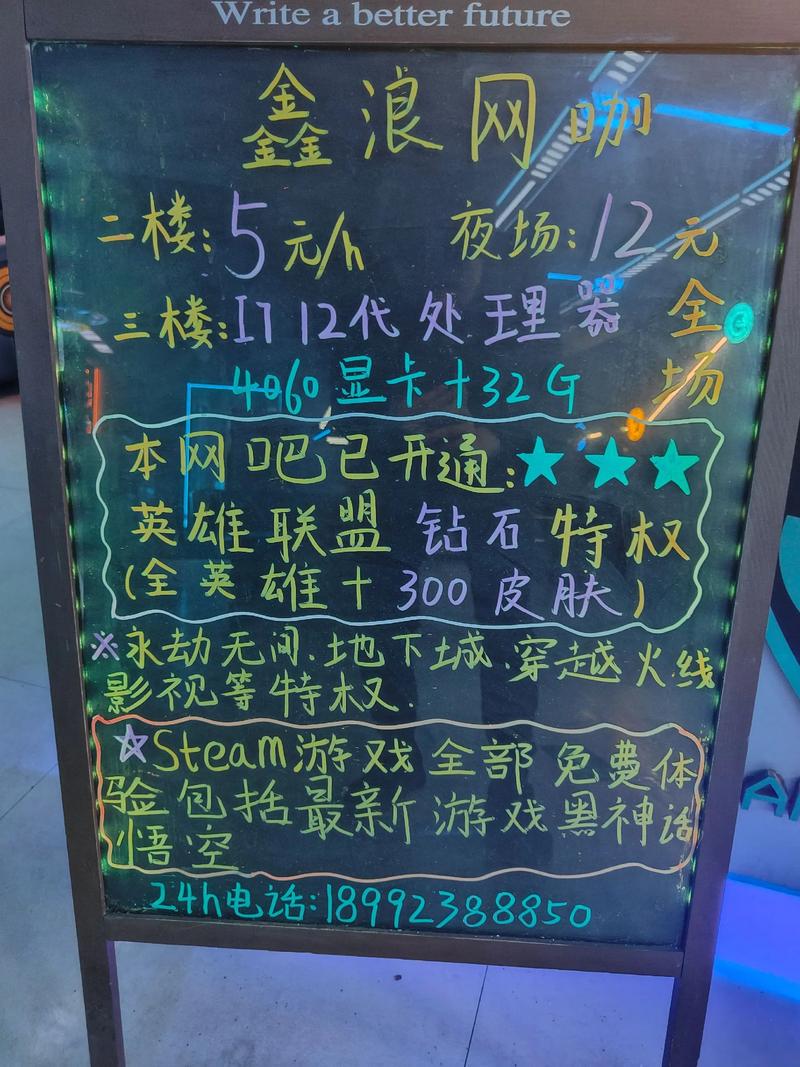 Write a better future
鑫浪网咖
二楼:5元/h 夜场:12元
三楼:I7 12代处理器 全场
4060显卡+32G
本网吧已开通:★★★
英雄联盟 钻石 特权
(全英雄+300皮肤)
※永劫无间.地下城.穿越火线
影视等特权.
☆Steam游戏全部免费体
验包括最新游戏黑神话
悟空
24h电话:18992388850